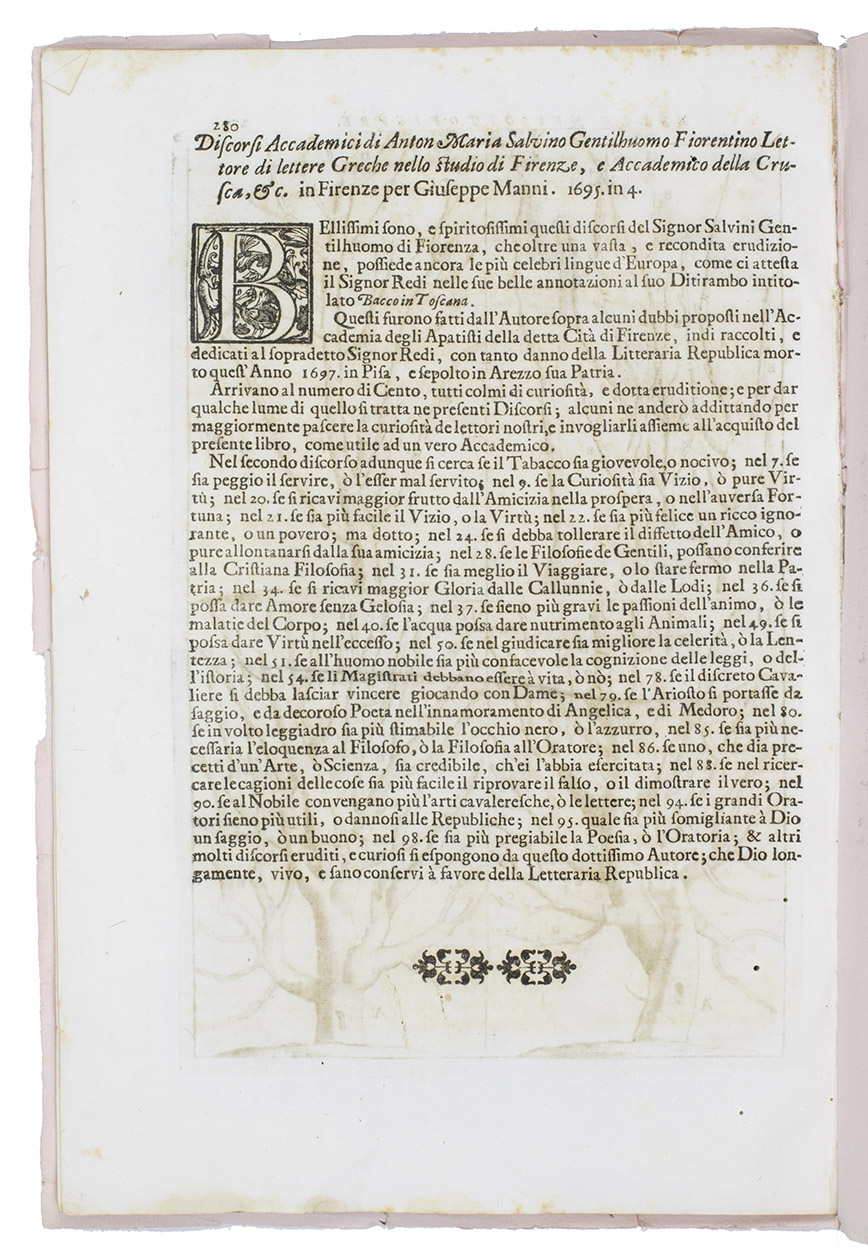 280
Diſcorſi Accademici di Anton Maria Salvino Gentilhuomo Fiorentino Let-
tore di lettere Greche nello ſtudio di Firenze, e Accademico della Cru-
ſca, &c. in Firenze per Giuſeppe Manni. 1695. in 4.
BElliſſimi ſono, e ſpiritoſiſſimi queſti diſcorſi del Signor Salvini Gen-
tilhuomo di Fiorenza, che oltre una vaſta, e recondita erudizio-
ne, poſſiede ancora le più celebri lingue d'Europa, come ci atteſta
il Signor Redi nelle ſue belle annotazioni al ſuo Ditirambo intito-
lato Bacco in Toſcana.
Queſti furono fatti dall'Autore ſopra alcuni dubbi propoſti nell'Ac-
cademia degli Apatiſti della detta Cità di Firenze, indi raccolti, e
dedicati al ſopradetto Signor Redi, con tanto danno della Litteraria Republica mor-
to queſt'Anno 1697. in Piſa, e ſepolto in Arezzo ſua Patria.
Arrivano al numero di Cento, tutti colmi di curioſità, e dotta eruditione; e per dar
qualche lume di quello ſi tratta ne preſenti Diſcorſi; alcuni ne anderò addittando per
maggiormente paſcere la curioſità de lettori noſtri, e invogliarli aſſieme all'acquiſto del
preſente libro, come utile ad un vero Accademico.
Nel ſecondo diſcorſo adunque ſi cerca ſe il Tabacco ſia giovevole, o nocivo; nel 7. ſe
ſia peggio il ſervire, ò l'eſſer mal ſervito; nel 9. ſe la Curioſità ſia Vizio, ò pure Vir-
tù; nel 20. ſe ſi ricavi maggior frutto dall'Amicizia nella proſpera, o nell'auverſa For-
tuna; nel 21. ſe ſia più facile il Vizio, o la Virtù; nel 22. ſe ſia più felice un ricco igno-
rante, o un povero; ma dotto; nel 24. ſe ſi debba tollerare il diffetto dell'Amico, o
pure allontanarſi dalla ſua amicizia; nel 28. ſe le Filoſofie de Gentili, poſſano conferire
alla Criſtiana Filoſofia; nel 31. ſe ſia meglio il Viaggiare, o lo ſtare fermo nella Pa-
tria; nel 34. ſe ſi ricavi maggior Gloria dalle Callunnie, ò dalle Lodi; nel 36. ſe ſi
poſſa dare Amore ſenza Geloſia; nel 37. ſe ſieno più gravi le paſſioni dell'animo, ò le
malatie del Corpo; nel 40. ſe l'acqua poſſa dare nutrimento agli Animali; nel 49. ſe ſi
poſſa dare Virtù nell'ecceſſo; nel 50. ſe nel giudicare ſia migliore la celerità, ò la Len-
tezza; nel 51. ſe all'huomo nobile ſia più confacevole la cognizione delle leggi, o del-
l'iſtoria; nel 54. ſe li Magiſtrati debbano eſſere à vita, ò nò; nel 78. ſe il diſcreto Cava-
liere ſi debba laſciar vincere giocando con Dame; nel 79. ſe l'Arioſto ſi portaſſe da
ſaggio, e da decoroſo Poeta nell'innamoramento di Angelica, e di Medoro; nel 80.
ſe in volto leggiadro ſia più ſtimabile l'occhio nero, ò l'azzurro, nel 85. ſe ſia più ne-
ceſſaria l'eloquenza al Filoſofo, ò la Filoſofia all'Oratore; nel 86. ſe uno, che dia pre-
cetti d'un'Arte, ò Scienza, ſia credibile, ch'ei l'abbia eſercitata; nel 88. ſe nel ricer-
care le cagioni delle coſe ſia più facile il riprovare il falſo, o il dimoſtrare il vero; nel
90. ſe al Nobile convengano più l'arti cavalereſche, ò le lettere; nel 94. ſe i grandi Ora-
tori ſieno più utili, o dannoſi alle Republiche; nel 95. quale ſia più ſomigliante à Dio
un ſaggio, ò un buono; nel 98. ſe ſia più pregiabile la Poeſia, ò l'Oratoria; & altri
molti diſcorſi eruditi, e curioſi ſi eſpongono da queſto dottiſſimo Autore; che Dio lon-
gamente, vivo, e ſano conſervi à favore della Letteraria Republica.